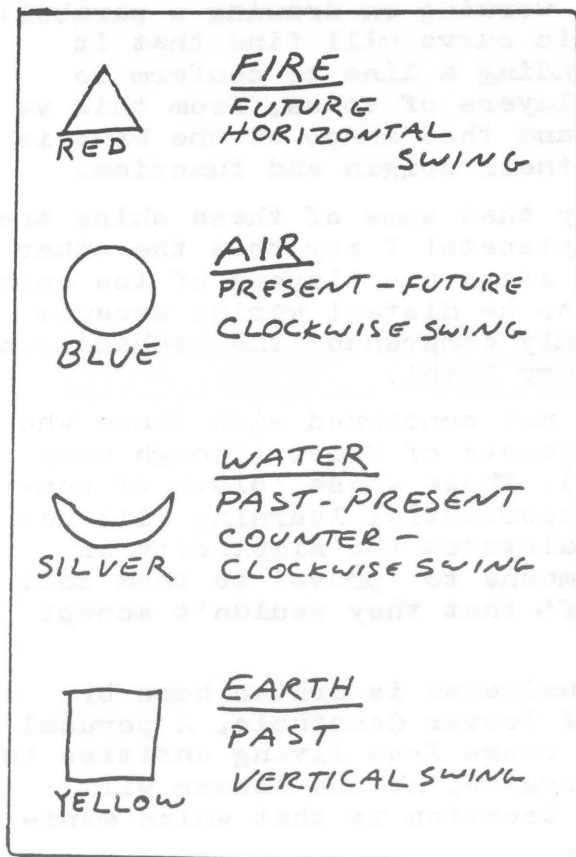 FIRE
FUTURE
HORIZONTAL
SWING
RED
AIR
PRESENT - FUTURE
CLOCKWISE SWING
BLUE
WATER
PAST - PRESENT
COUNTER-
CLOCKWISE SWING
SILVER
EARTH
PAST
VERTICAL SWING
YELLOW